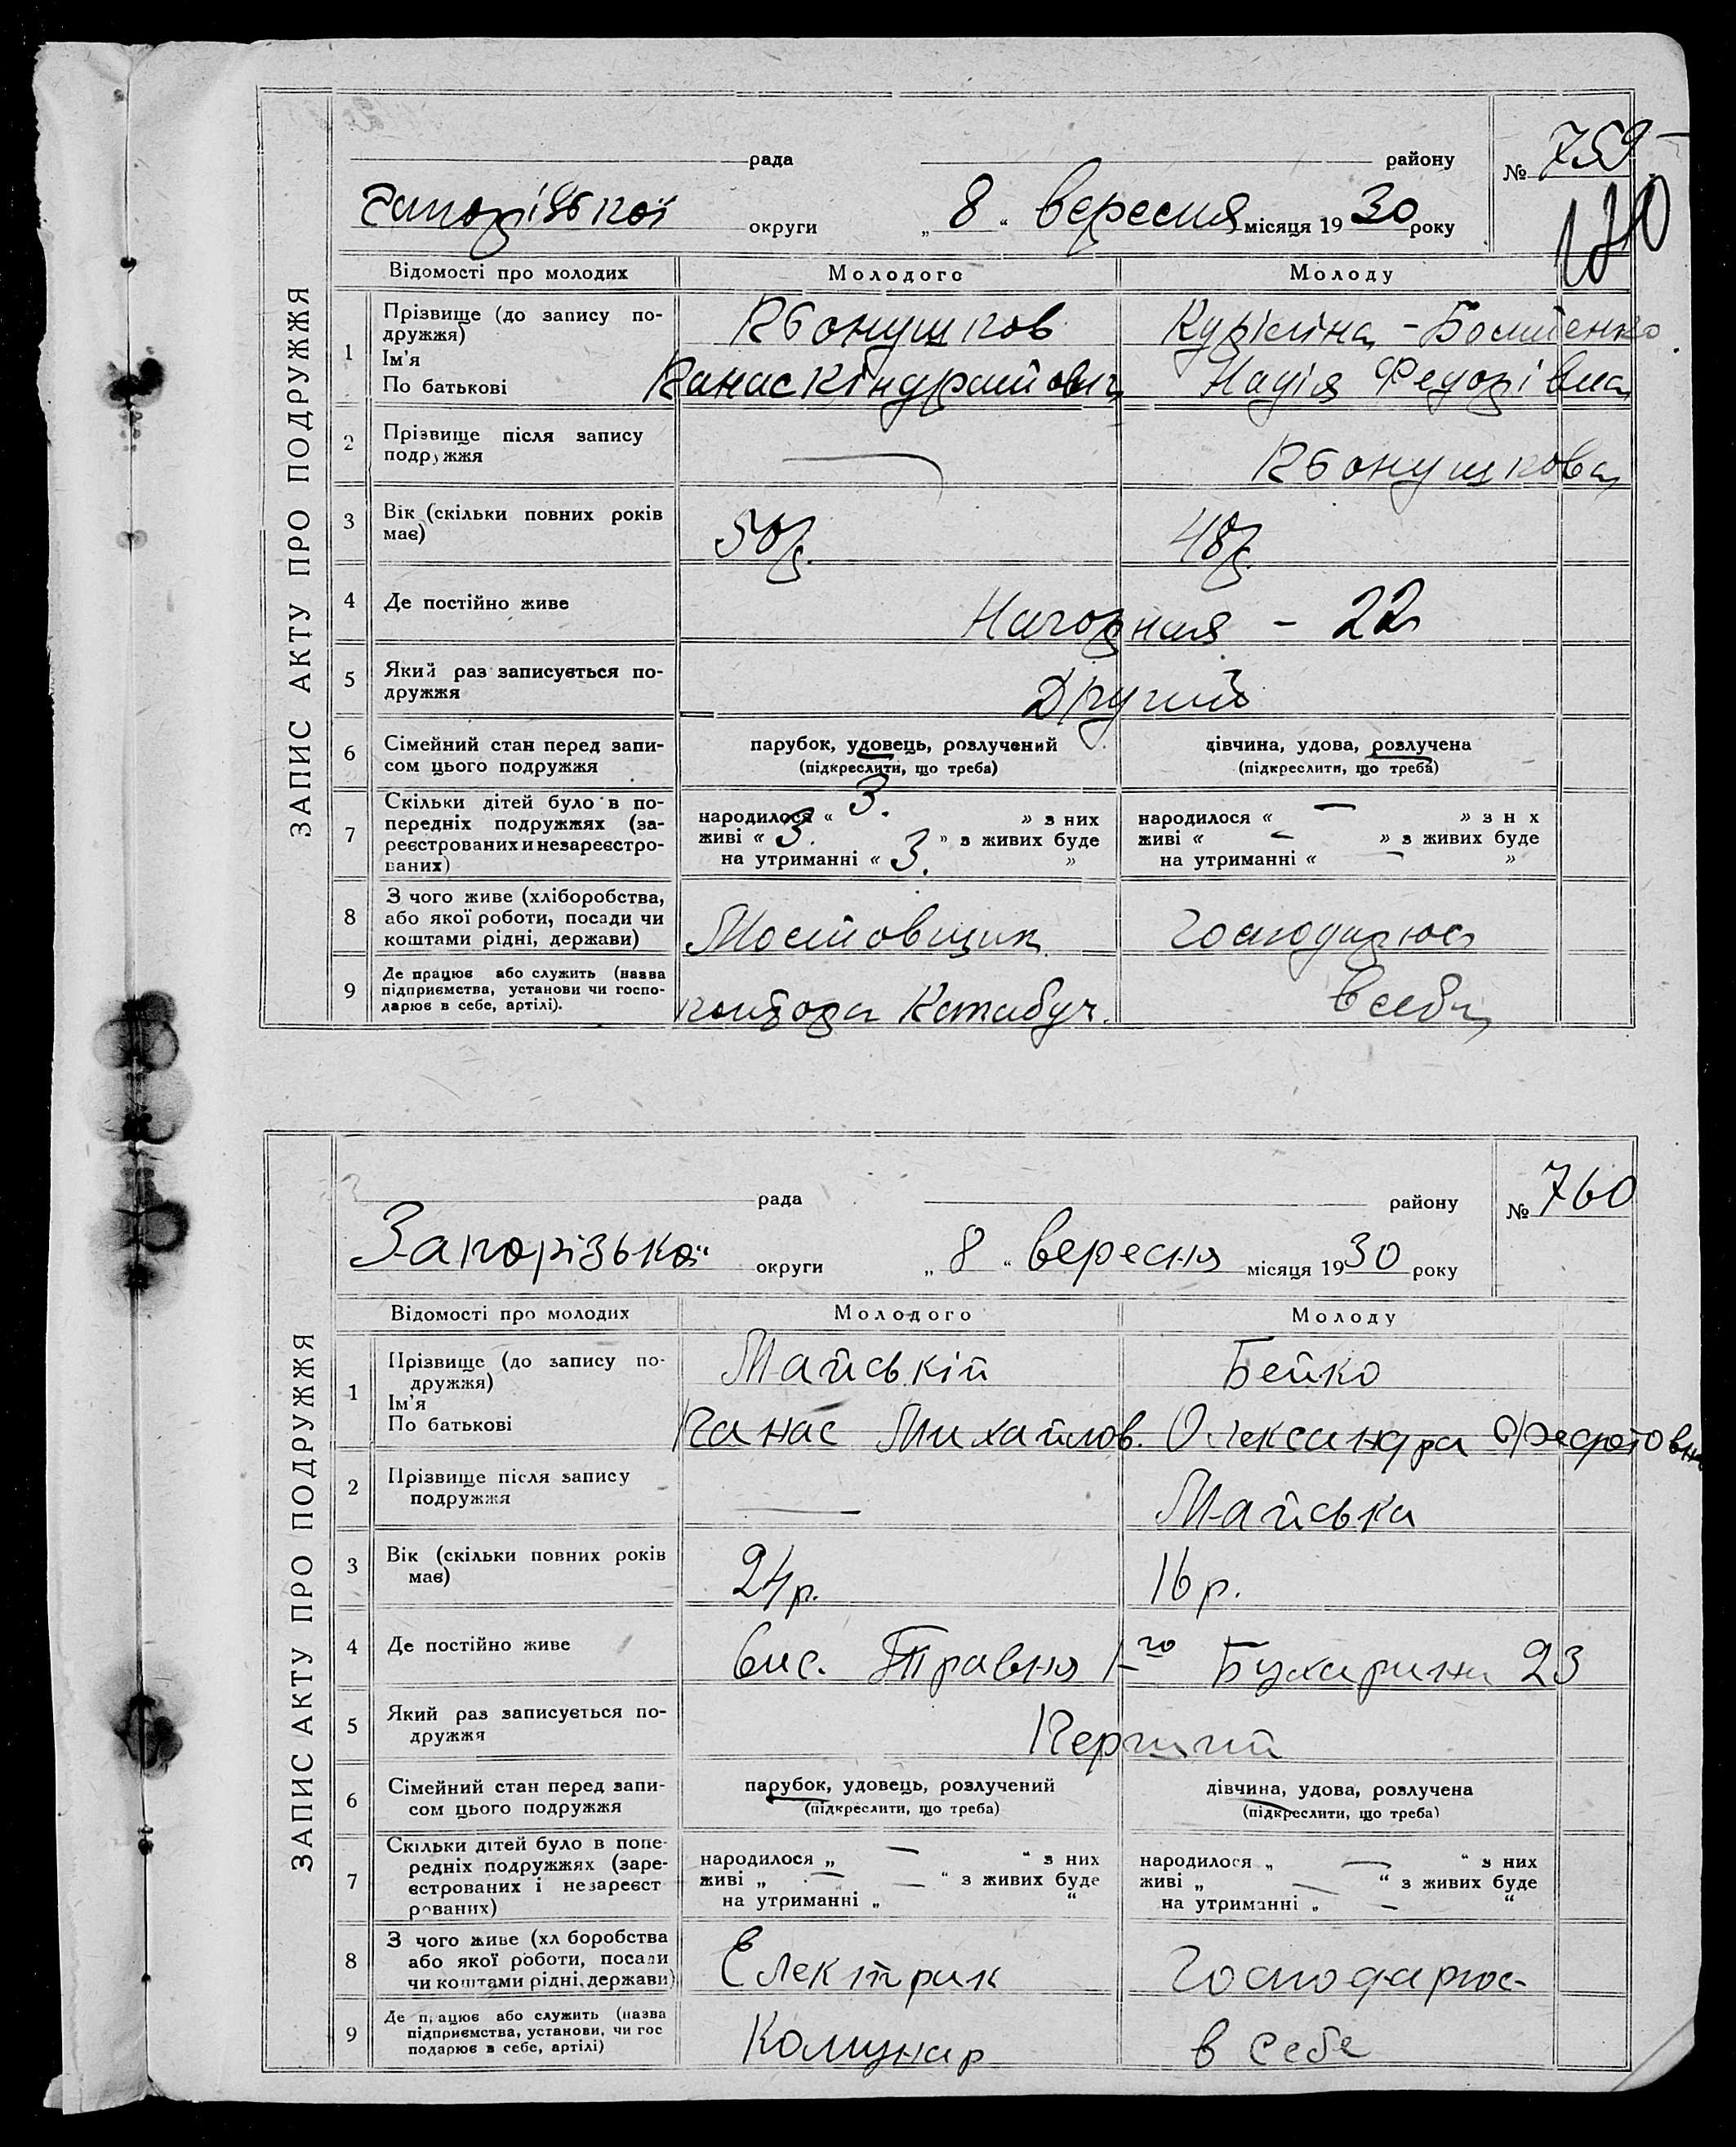 ЗАПИС АКТУ ПРО ПОДРУЖЖЯ
рада району № 759
170
округи „ 8 “ вересня місяця 1930 року
Відомості про молодих Молодого Молоду
1 Прізвище (до запису по-
дружжя)
Ім'я
По батькові
Панас Кіндратович Надія Федорівна
2 Прізвище після запису
подружжя
—
3 Вік (скільки повних років
має)
50р. 48р.
4 Де постійно живе
Нагорная - 22
5 Який раз записується по-
дружжя
Другий
6 Сімейний стан перед запи-
сом цього подружжя
парубок, удовець, розлучений
(підкреслити, що треба)
дівчина, удова, розлучена
(підкреслити, що треба)
7 Скільки дітей було в по-
передніх подружжях (за-
реєстрованих и незареєстро-
ваних)
народилося « 3. » з них
живі « 3. » з живих буде
на утриманні « 3. »
народилося « — » з н х
живі « — » з живих буде
на утриманні « — »
8 З чого живе (хліборобства,
або якої роботи, посади чи
коштами рідні, держави)
Мостовщик
9 Де працює або служить (назва
підприємства, установи чи госпо-
дарює в себе, артілі).
контора
ЗАПИС АКТУ ПРО ПОДРУЖЖЯ
рада району № 760
Запорізької округи „ 8 “ вересня місяця 1930 року
Відомості про молодих Молодого Молоду
1 Прізвище (до запису по-
дружжя)
Ім'я
По батькові
Майський Бейко
Панас Михайлов. Олександра
2 Прізвище після запису
подружжя
— Майська
3 Вік (скільки повних років
має)
24р. 16р.
4 Де постійно живе
Травня 1-го Бухарина 23
5 Який раз записується по-
дружжя
Перший
6 Сімейний стан перед запи-
сом цього подружжя
парубок, удовець, розлучений
(підкреслити, що треба)
дівчина, удова, розлучена
(підкреслити, що треба)
7 Скільки дітей було в попе-
редніх подружжях (заре-
єстрованих і незареєст
рованих)
народилося „ — “ з них
живі „ — “ з живих буде
на утриманні „ — “
народилося „ — “ з них
живі „ — “ з живих буде
на утриманні „ — “
8 З чого живе (хл боробства
або якої роботи, посади
чи коштами рідні, держави)
Електрик Господарює
9 Де працює або служить (назва
підприємства, установи, чи гос
подарює в себе, артілі)
Комунар в себе